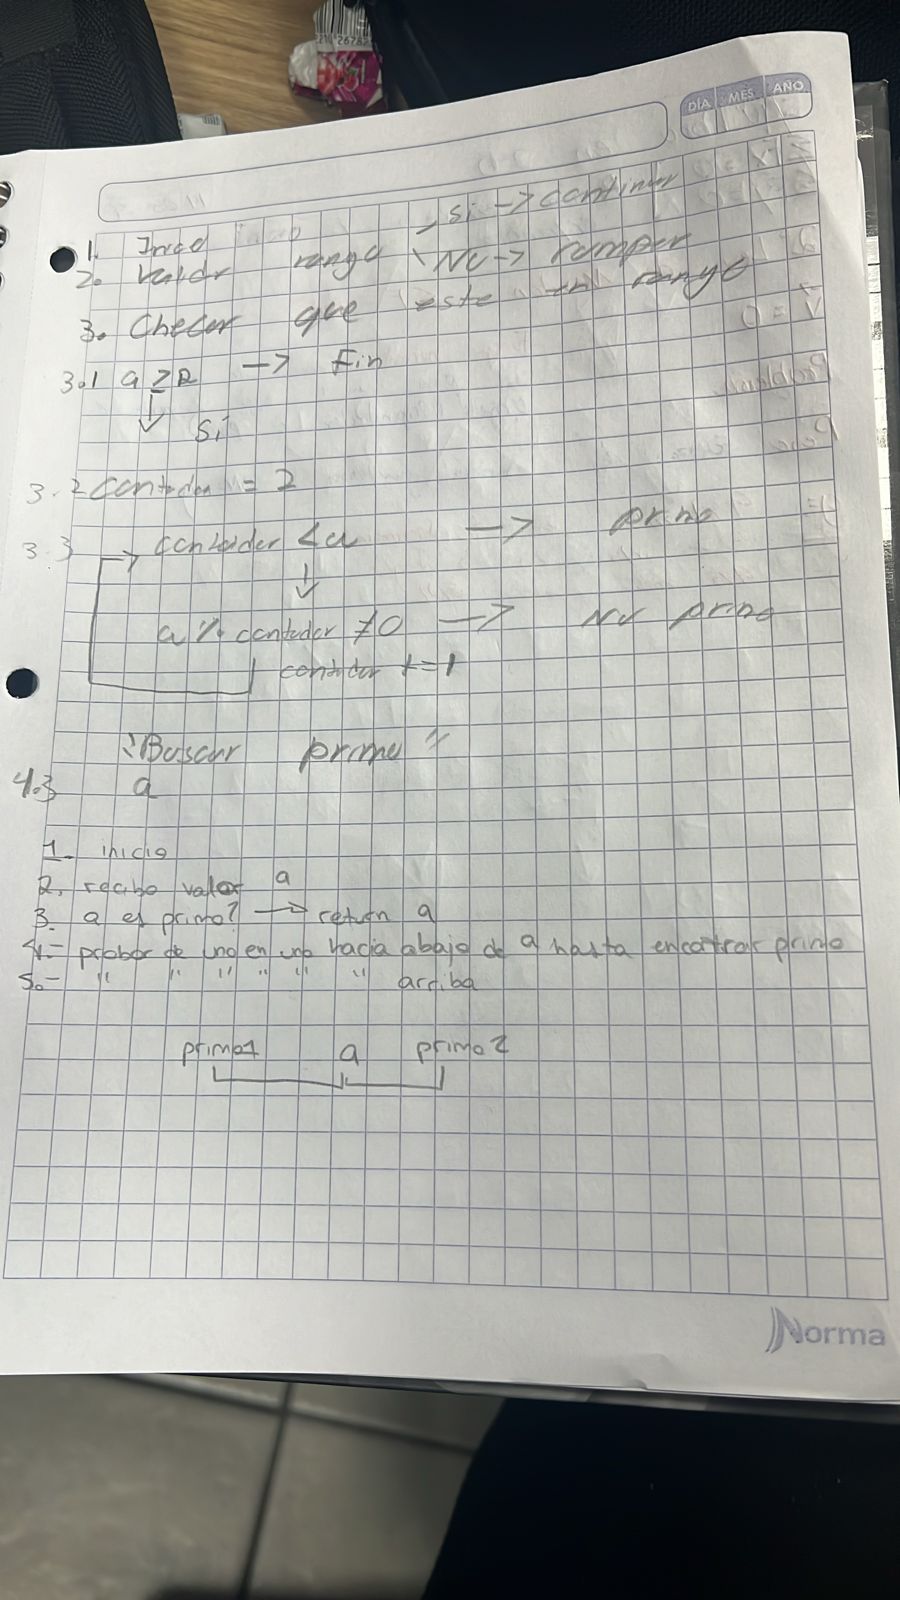 DÍA MES AÑO
Si -> continuar
1. Inicio
2. Validr rango No -> romper
3. Checar que este en rango
3.1 a ≥ 2 -> Fin
Si
3.2 contador = 2
3.3 contador < a -> primo
a % contador ≠ 0 -> No primo
contador += 1
"Buscar primo"
4.3 a
1. inicio
2. recibo valor a
3. a es primo? -> return a
4.- probar de uno en uno hacia abajo de a hasta encontrar primo
5.- " " " " " " arriba
primo1 a primo2
Norma